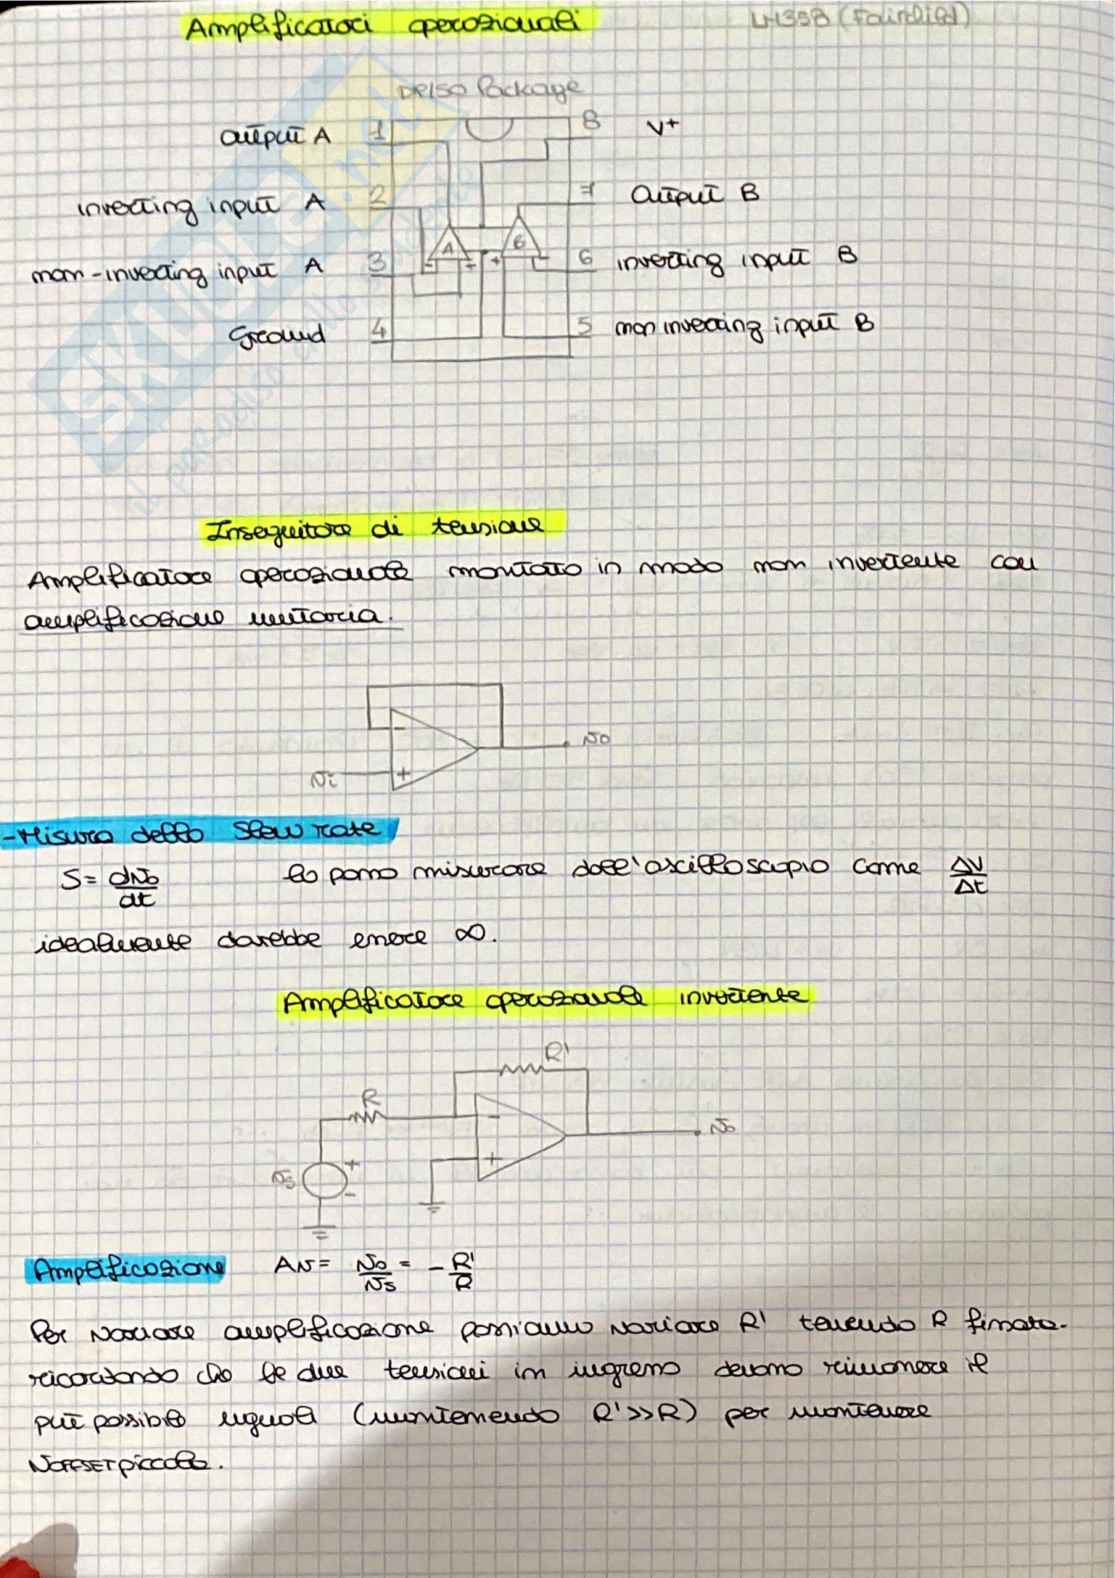 Amplificatori operazionali LM358 (Fairchild)
DIP/SO Package
output A 1 8 V+
inverting input A 2 7 Output B
non-inverting input A 3 6 inverting input B
Ground 4 5 non inverting input B
A B
- + + -
SKUOLA.net
il paradiso dello studente
Inseguitore di tensione
Amplificatore operazionale montato in modo non invertente con
amplificazione unitaria.
-
vi + vo
-Misura dello Slew rate
S = dvo/dt lo posso misurare dall'oscilloscopio come ΔV/Δt
idealmente dovrebbe essere ∞.
Amplificatore operazionale invertente
R'
R
-
vo
vs + - +
Amplificazione Av = vo/vs = - R'/R
Per variare amplificazione possiamo variare R' tenendo R fissata.
ricordando che le due tensioni in ingresso devono rimanere il
più possibile uguali (mantenendo R'>>R) per mantenere
VOFFSET piccola.